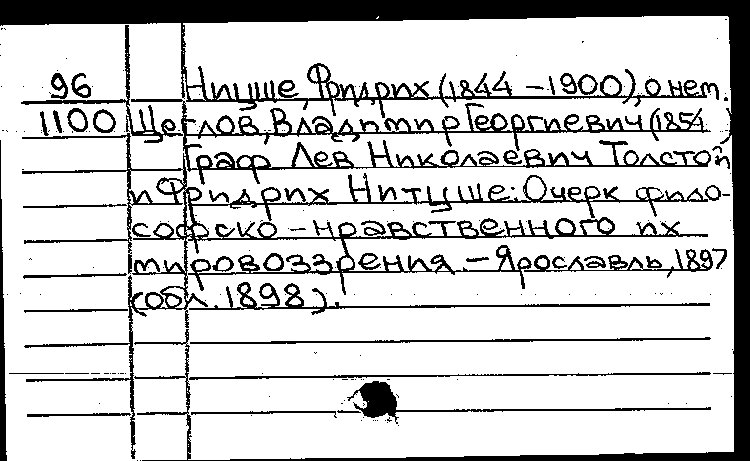 96 Ницше, Фридрих (1844 - 1900), о нем.
1100 Щеглов, Владимир Георгиевич (1854 )
Граф Лев Николаевич Толстой
и Фридрих Нитцше: Очерк фило-
софско - нравственного их
мировоззрения. - Ярославль, 1897
(обл. 1898).